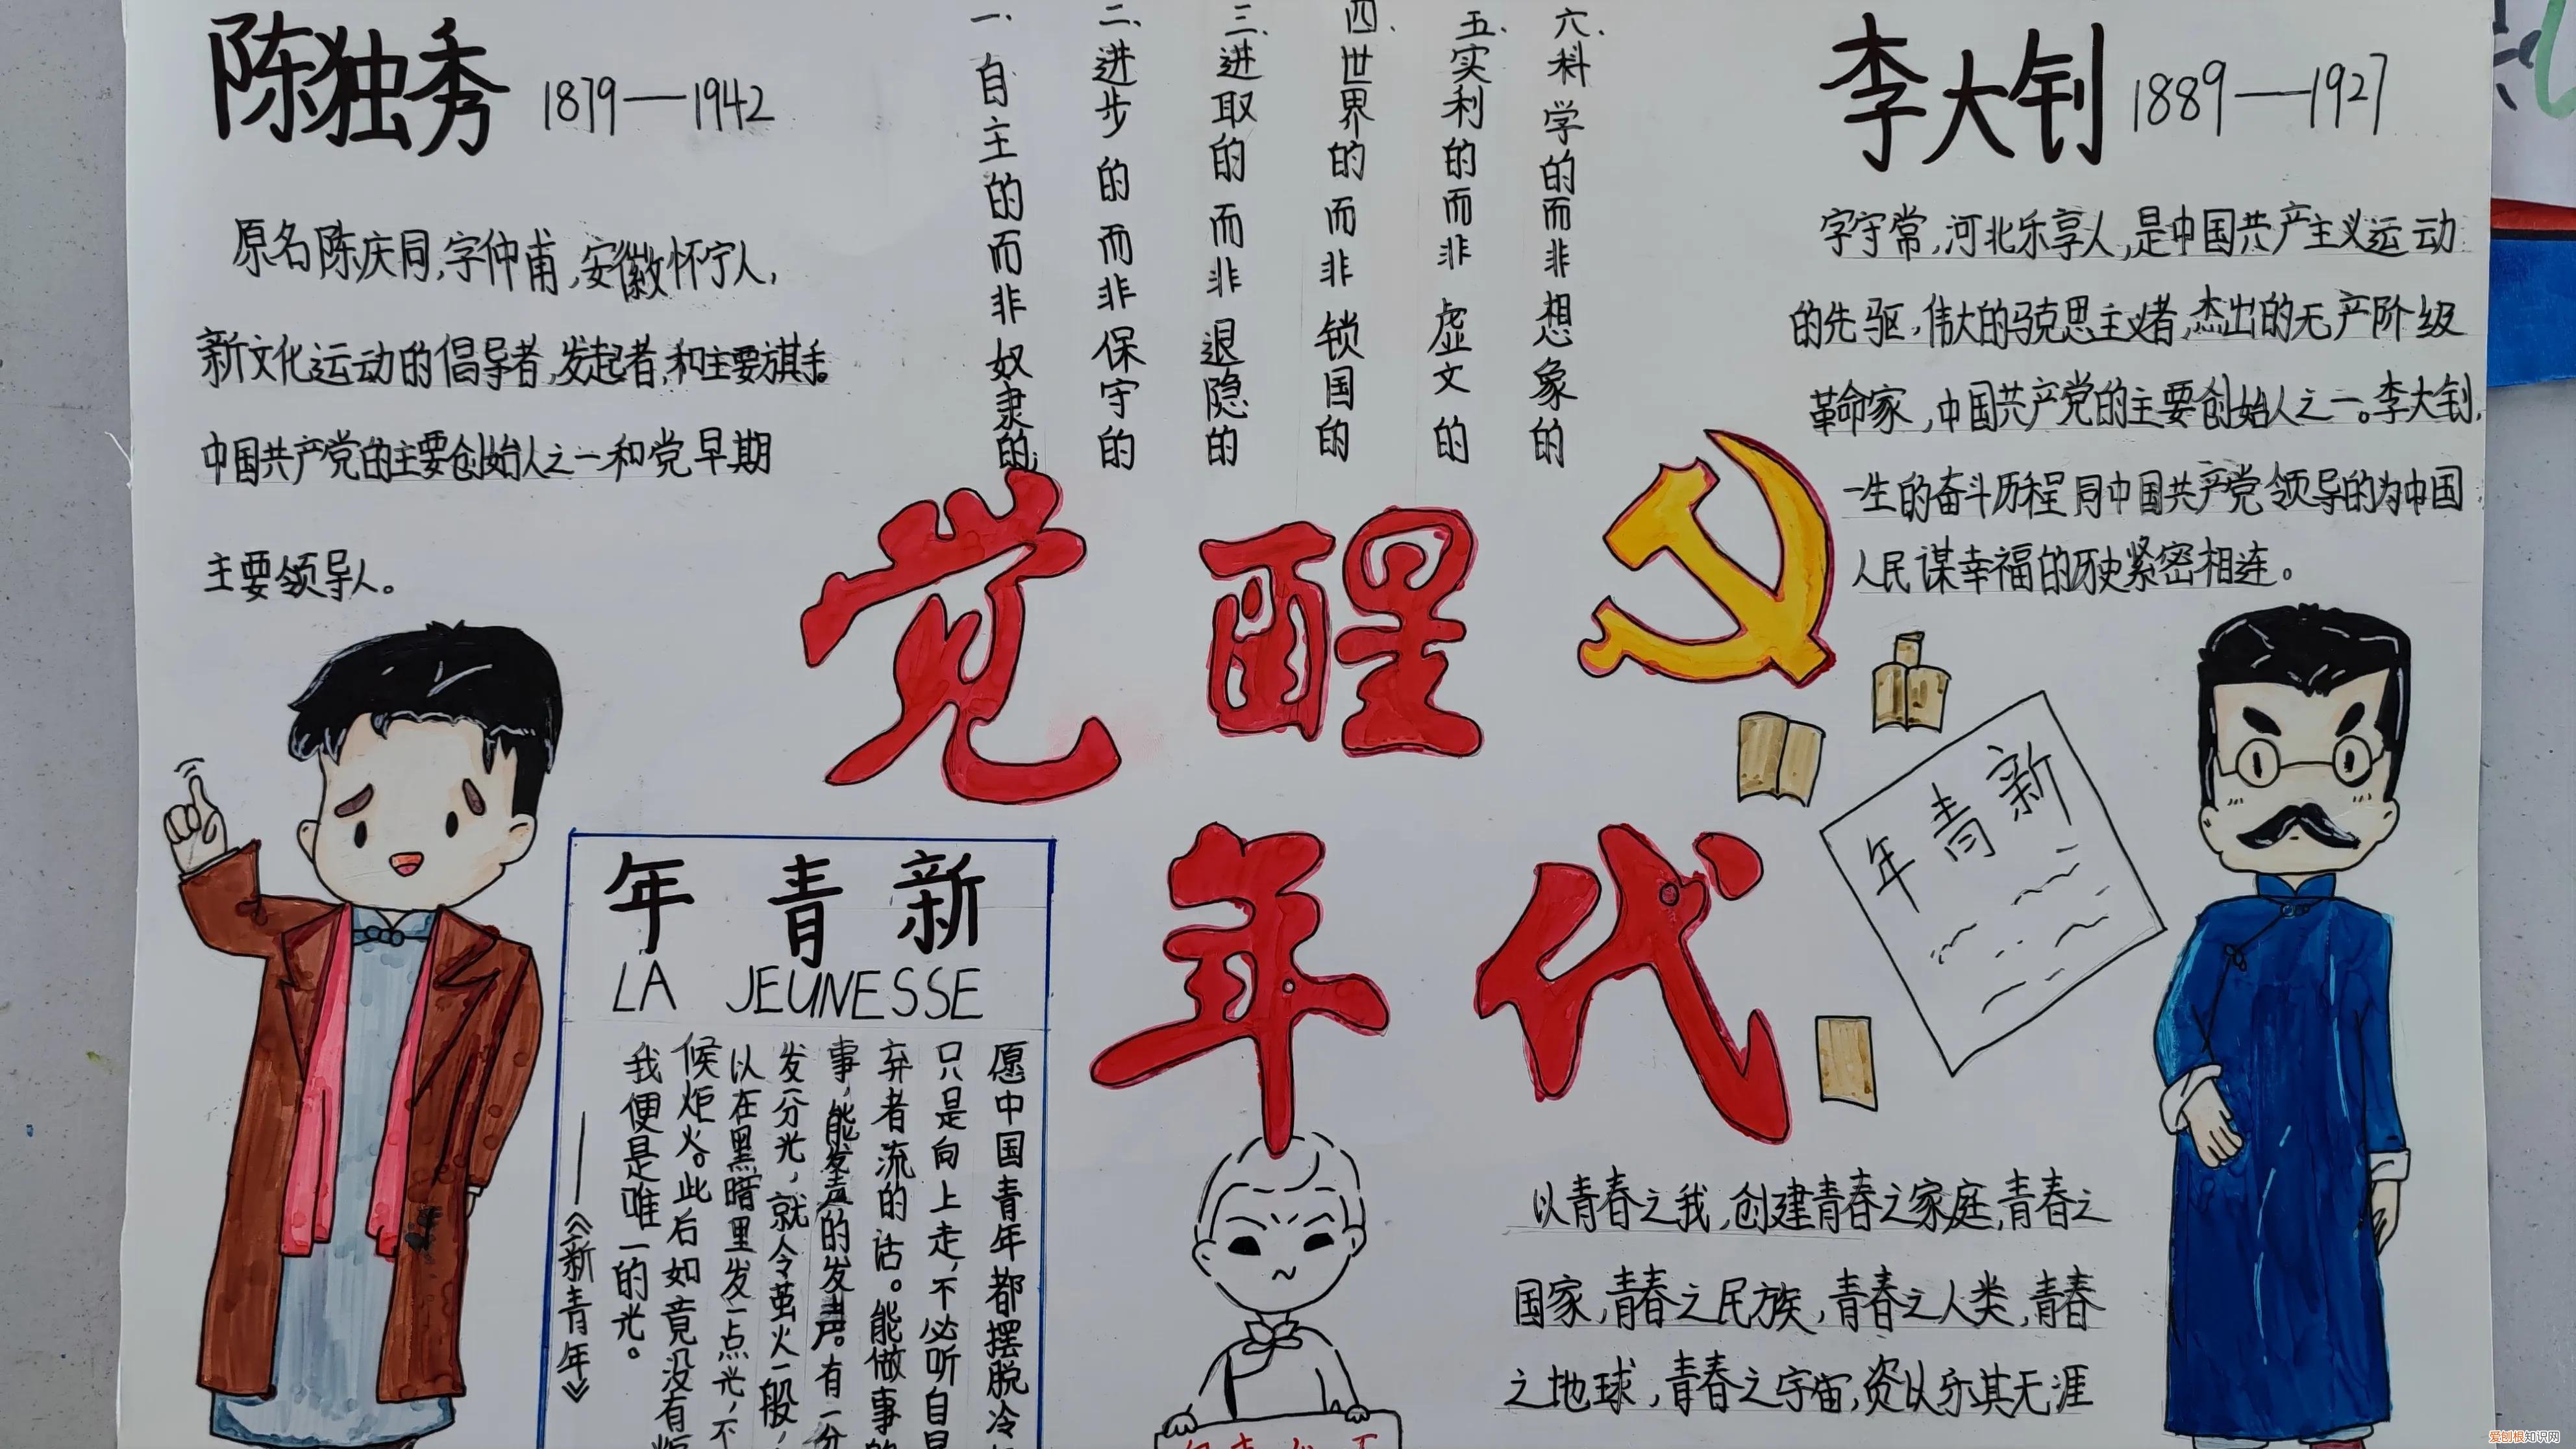 陈独秀 1879——1942
原名陈庆同,字仲甫,安徽怀宁人,
新文化运动的倡导者,发起者,和主要旗手。
中国共产党的主要创始人之一和党早期
主要领导人。
一.自主的而非奴隶的
二.进步的而非保守的
三.进取的而非退隐的
四.世界的而非锁国的
五.实利的而非虚文的
六.科学的而非想象的
李大钊 1889——1927
字守常,河北乐享人,是中国共产主义运动
的先驱,伟大的马克思主义者,杰出的无产阶级
革命家,中国共产党的主要创始人之一。李大钊,
一生的奋斗历程同中国共产党领导的为中国
人民谋幸福的历史紧密相连。
觉醒
年代
新青年
LA JEUNESSE
愿中国青年都摆脱冷
只是向上走,不必听自
弃者流的话。能做事的
事,能发声的发声。有一分
发一分光,就令萤火一般,
以在黑暗里发一点光,不
候炬火。此后如竟没有
我便是唯一的光。
——《新青年》
新青年
以青春之我,创建青春之家庭,青春之
国家,青春之民族,青春之人类,青春
之地球,青春之宇宙,资以乐其无涯
爱刨根知识网